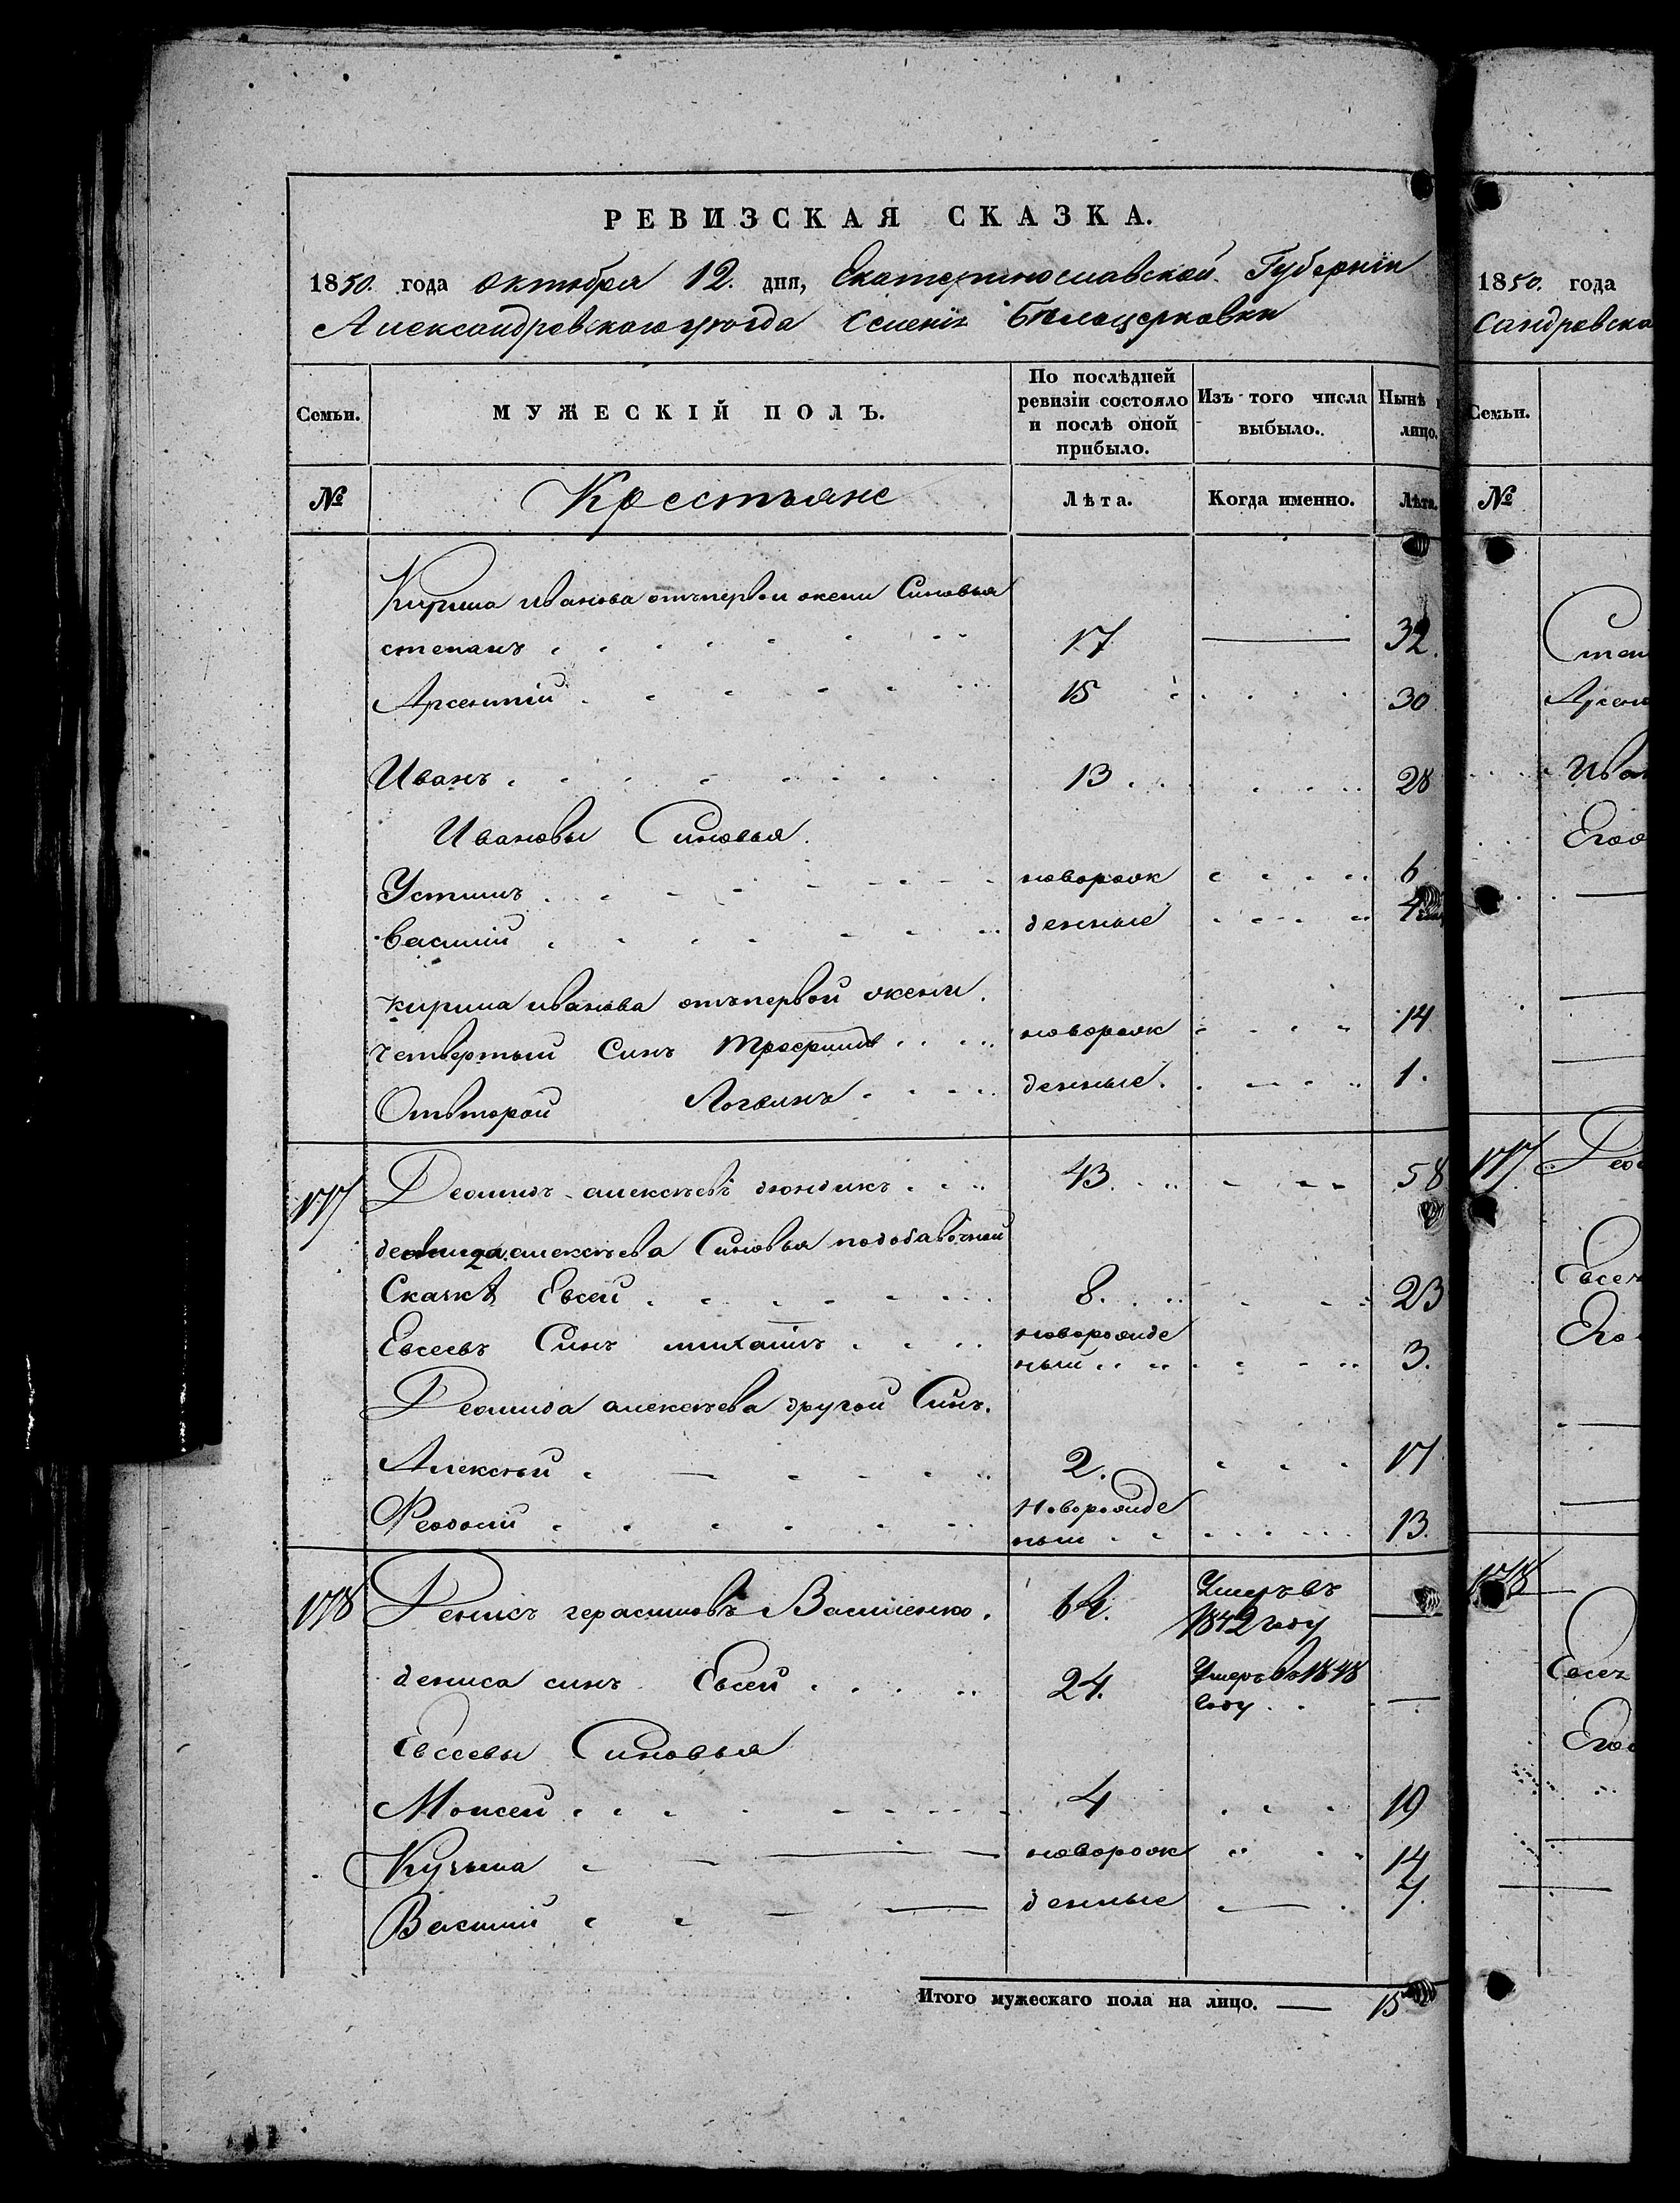 РЕВИЗСКАЯ СКАЗКА.
1850. года Октября 12. дня, Екатеринославской Губернии
Александровского уѣзда Селенія Бѣлоцерковки
Семьи. МУЖЕСКІЙ ПОЛЪ. По послѣдней ревизіи состояло и послѣ оной прибыло. Изъ того числа выбыло. Нынѣ лицо.
№ Крестьяне Лѣта. Когда именно. Лѣта.
Кирила иванова отъпервои жени Синовья
степанъ 17 32.
Арсентій 15 30
Иванъ 13 28
Ивановы Синовья.
Устинъ новорож 6
Василій денные 4
кирила иванова отъпервой жени.
четвертый Синъ Трофимъ новорож 14
Отвторой Логвинъ денные. 1.
177 Деомидъ алексѣевъ дюндикъ 43. 58
деомида алексѣева Синовья подобавочной
Сказкѣ Евсей 8. 23
Евсеевъ Синъ михаилъ новорожде
ный 3.
Деомида алексѣева другой Синъ.
Алексѣй 2. 17
Феодосій Новорожде
ный 13.
178 Денисъ герасимовъ Василенко. 62. Умеръ въ
1842 году
дениса синъ Евсей 24. Умеръ въ 1848
году
Евсеевы Синовья
Моисей 4 19
Кузьма новорож 14
Василій денные 7.
Итого мужескаго пола на лицо. — 15
1850. года
сандровско
Семьи.
№
Степ
Арсен
Иван
Его
177 Део
Евсея
Его
178
Евсея
Его